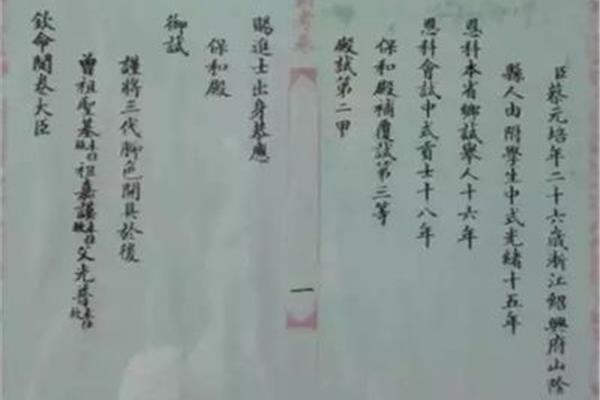 臣蔡元培年二十六歲浙江紹興府山陰
縣人由附學生中式光緒十五年
恩科本省鄉試舉人十六年
恩科會試中式貢士十八年
保和殿補覆試第三等
殿試第二甲
賜進士出身恭應
保和殿
御試
謹將三代腳色開具於後
曾祖聖基未仕故祖嘉謨未仕故父光普未仕故
欽命閱卷大臣
一